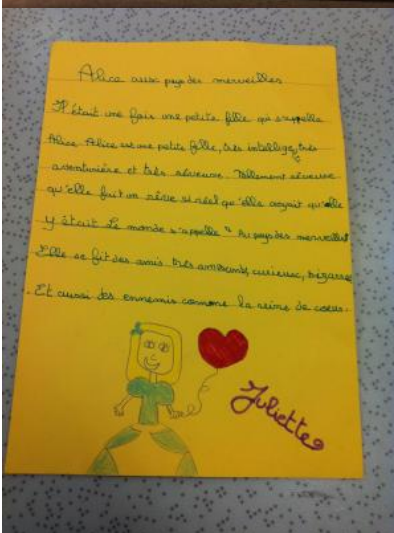 Alice aux pays des merveilles
Il était une fois une petite fille qui s'appelle
Alice. Alice est une petite fille, très intellige, très
aventurière et très rêveuse. Tellement rêveuse
qu'elle fait un rêve si réel qu'elle croyait qu'elle
y était. Le monde s'appelle "Au pays des merveilles
Elle se fit des amis très amusants, curieux, bizarre
Et aussi des ennemis comme la reine de coeur.
Juliette